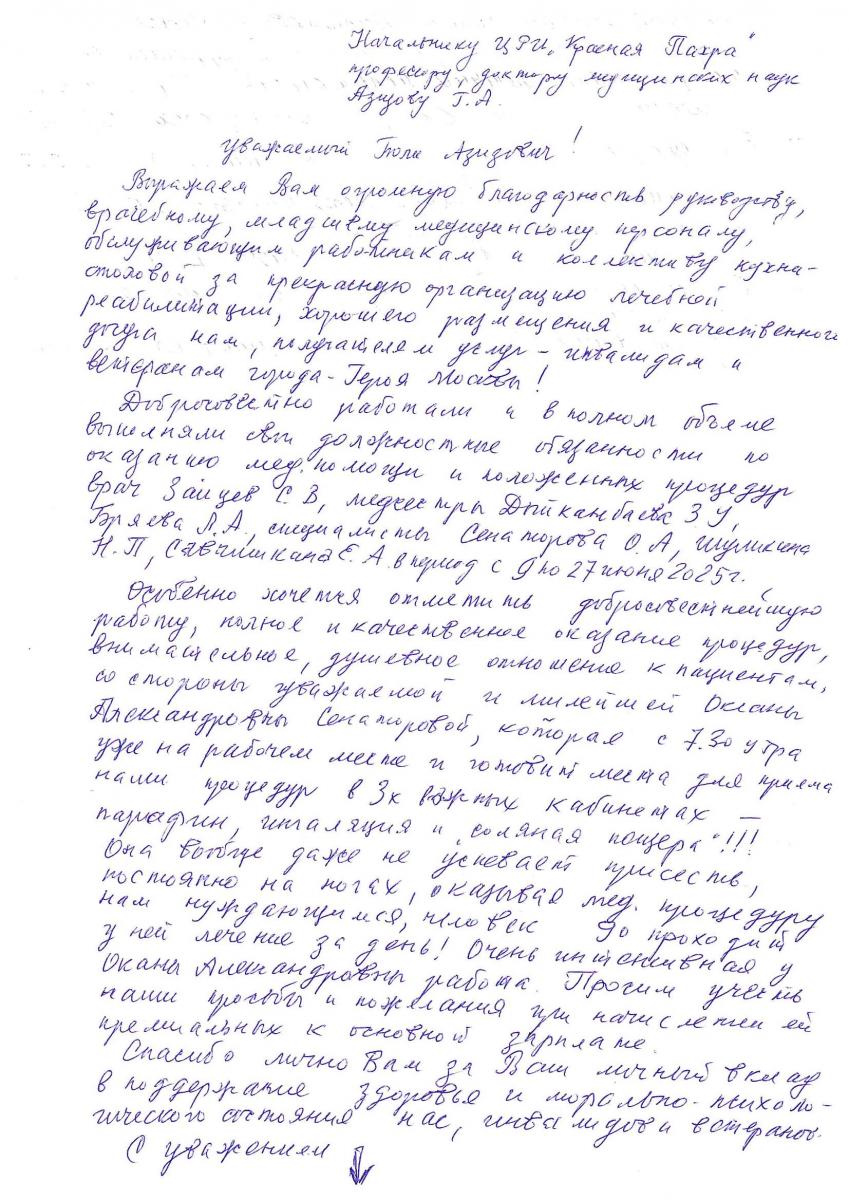 Начальнику ЦРИ „Красная Пахра"
профессору, доктору медицинских наук
Азизову Г.А.
Уважаемый Азизович!
Выражаем Вам огромную благодарность руководству,
врачебному, младшему медицинскому персоналу,
обслуживающим работникам и коллективу кухни-
столовой за прекрасную организацию лечебной
реабилитации, хорошего размещения и качественного
досуга нам, получателям услуг - инвалидам и
ветеранам города-Героя Москвы!
Добросовестно работали и в полном объеме
выполняли свои должностные обязанности по
оказанию мед. помощи и положенных процедур
врач Зайцев С.В, медсестры Дыйканбаева З У,
Бряева Л.А., специалисты Сенаторова О.А, Шуликина
Н.П, Е.А. в период с 9 по 27 июня 2025г.
Особенно хочется отметить добросовестнейшую
работу, полное и качественное оказание процедур,
внимательное, душевное отношение к пациентам,
со стороны уважаемой и милейшей Оксаны
Александровны Сенаторовой, которая с 7.30 утра
уже на рабочем месте и готовит места для приема
нами процедур в 3х важных кабинетах –
парафин, ингаляция и „соляная пещера"!!!
Она вообще даже не успевает присесть,
постоянно на ногах, оказывая мед. процедуру
нам нуждающимся, человек 90 проходит
у ней лечение за день! Очень интенсивная у
Оксаны Александровны работа. Просим учесть
наши просьбы и пожелания при начислении ей
премиальных к основной зарплате.
Спасибо лично Вам за Ваш личный вклад
в поддержание здоровья и морально-психоло-
гического состояния нас, инвалидов и ветеранов.
С уважением